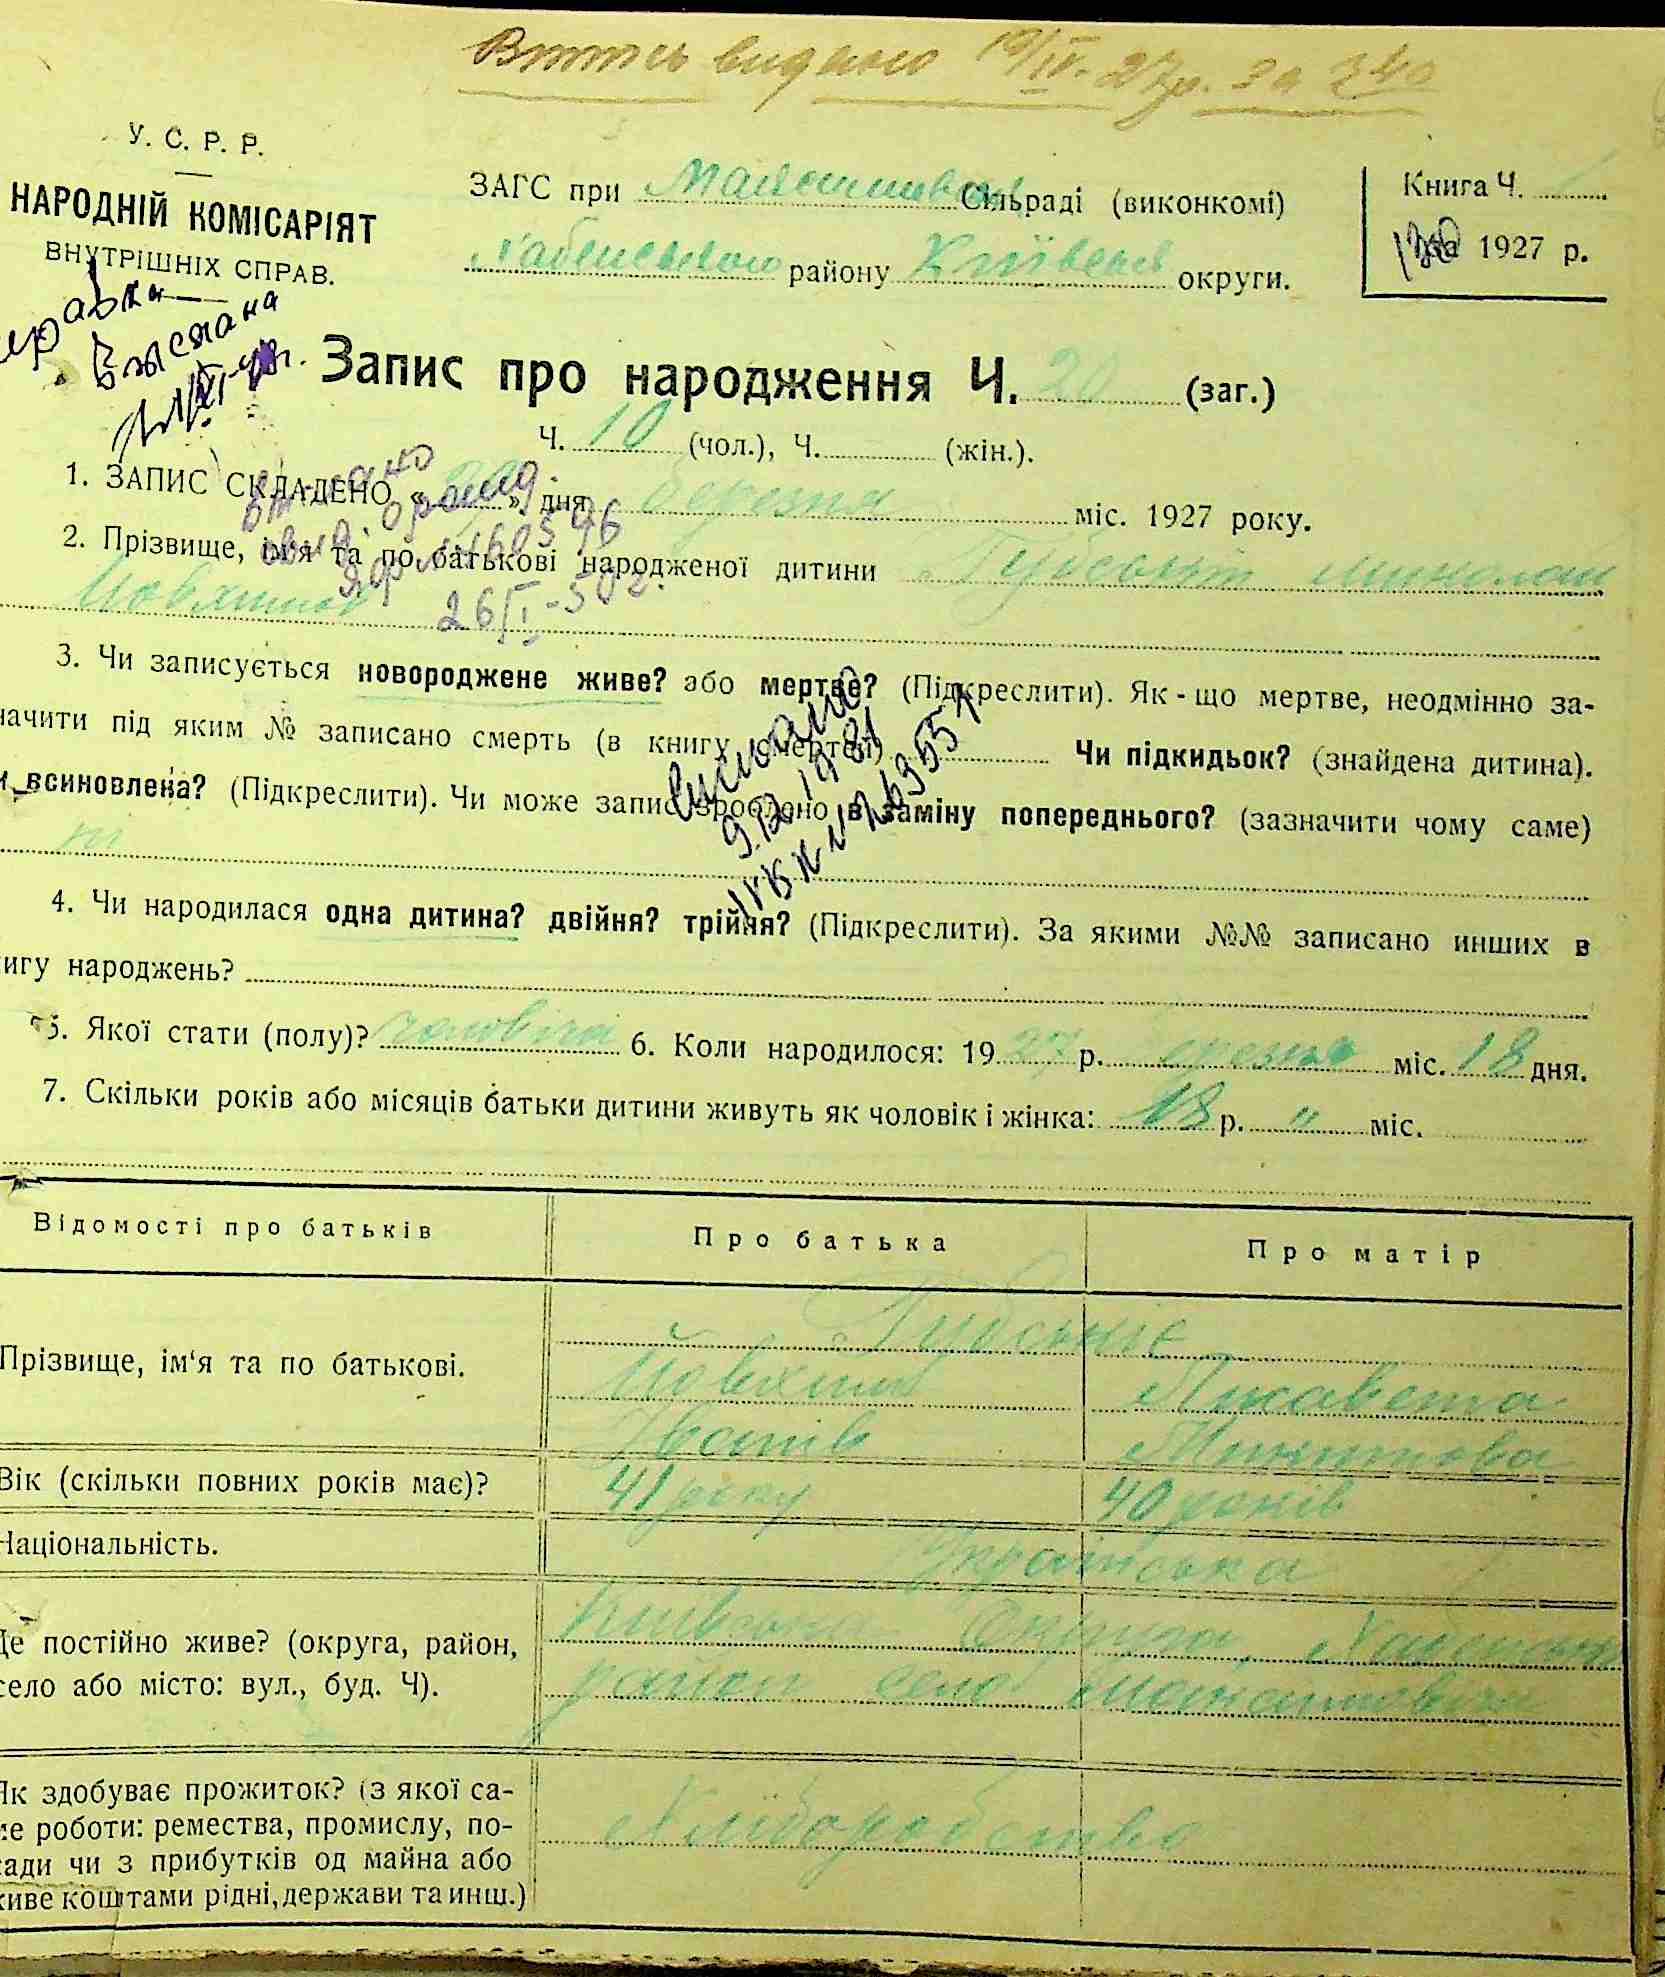 видано 19/IV. 27р. за
У. С. Р. Р.
НАРОДНІЙ КОМІСАРІЯТ
ВНУТРІШНІХ СПРАВ.
ЗАГС при Сільраді (виконкомі)
Хабенського району Київської округи.
Книга Ч.
на 1927 р.
Запис про народження Ч. 20 (заг.)
Ч. 10 (чол.), Ч. (жін.).
1. ЗАПИС СКЛАДЕНО « » дня березня міс. 1927 року.
2. Прізвище, ім'я та по батькові народженої дитини Губський Миколай
Йовхимов
26/I-50г.
3. Чи записується новороджене живе? або мертве? (Підкреслити). Як-що мертве, неодмінно за-
начити під яким № записано смерть (в книгу смертей) Чи підкидьок? (знайдена дитина).
и всиновлена? (Підкреслити). Чи може запис зроблено в заміну попереднього? (зазначити чому саме)
видано
9.12.1981
4. Чи народилася одна дитина? двійня? трійня? (Підкреслити). За якими №№ записано инших в
игу народжень?
5. Якої стати (полу)? чоловіча 6. Коли народилося: 1927 р. березня міс. 18 дня.
7. Скільки років або місяців батьки дитини живуть як чоловік і жінка: 18 р. " міс.
Відомості про батьків Про батька Про матір
Прізвище, ім'я та по батькові. Губські
Йовхим Лисавета
Іванів
Вік (скільки повних років має)? 41 року 40 років
Національність. Українська
Де постійно живе? (округа, район, Київська Округа, Хабенський
село або місто: вул., буд. Ч). район село
Як здобуває прожиток? (з якої са-
ме роботи: ремества, промислу, по- Хліборобство
сади чи з прибутків од майна або
живе коштами рідні, держави та инш.)